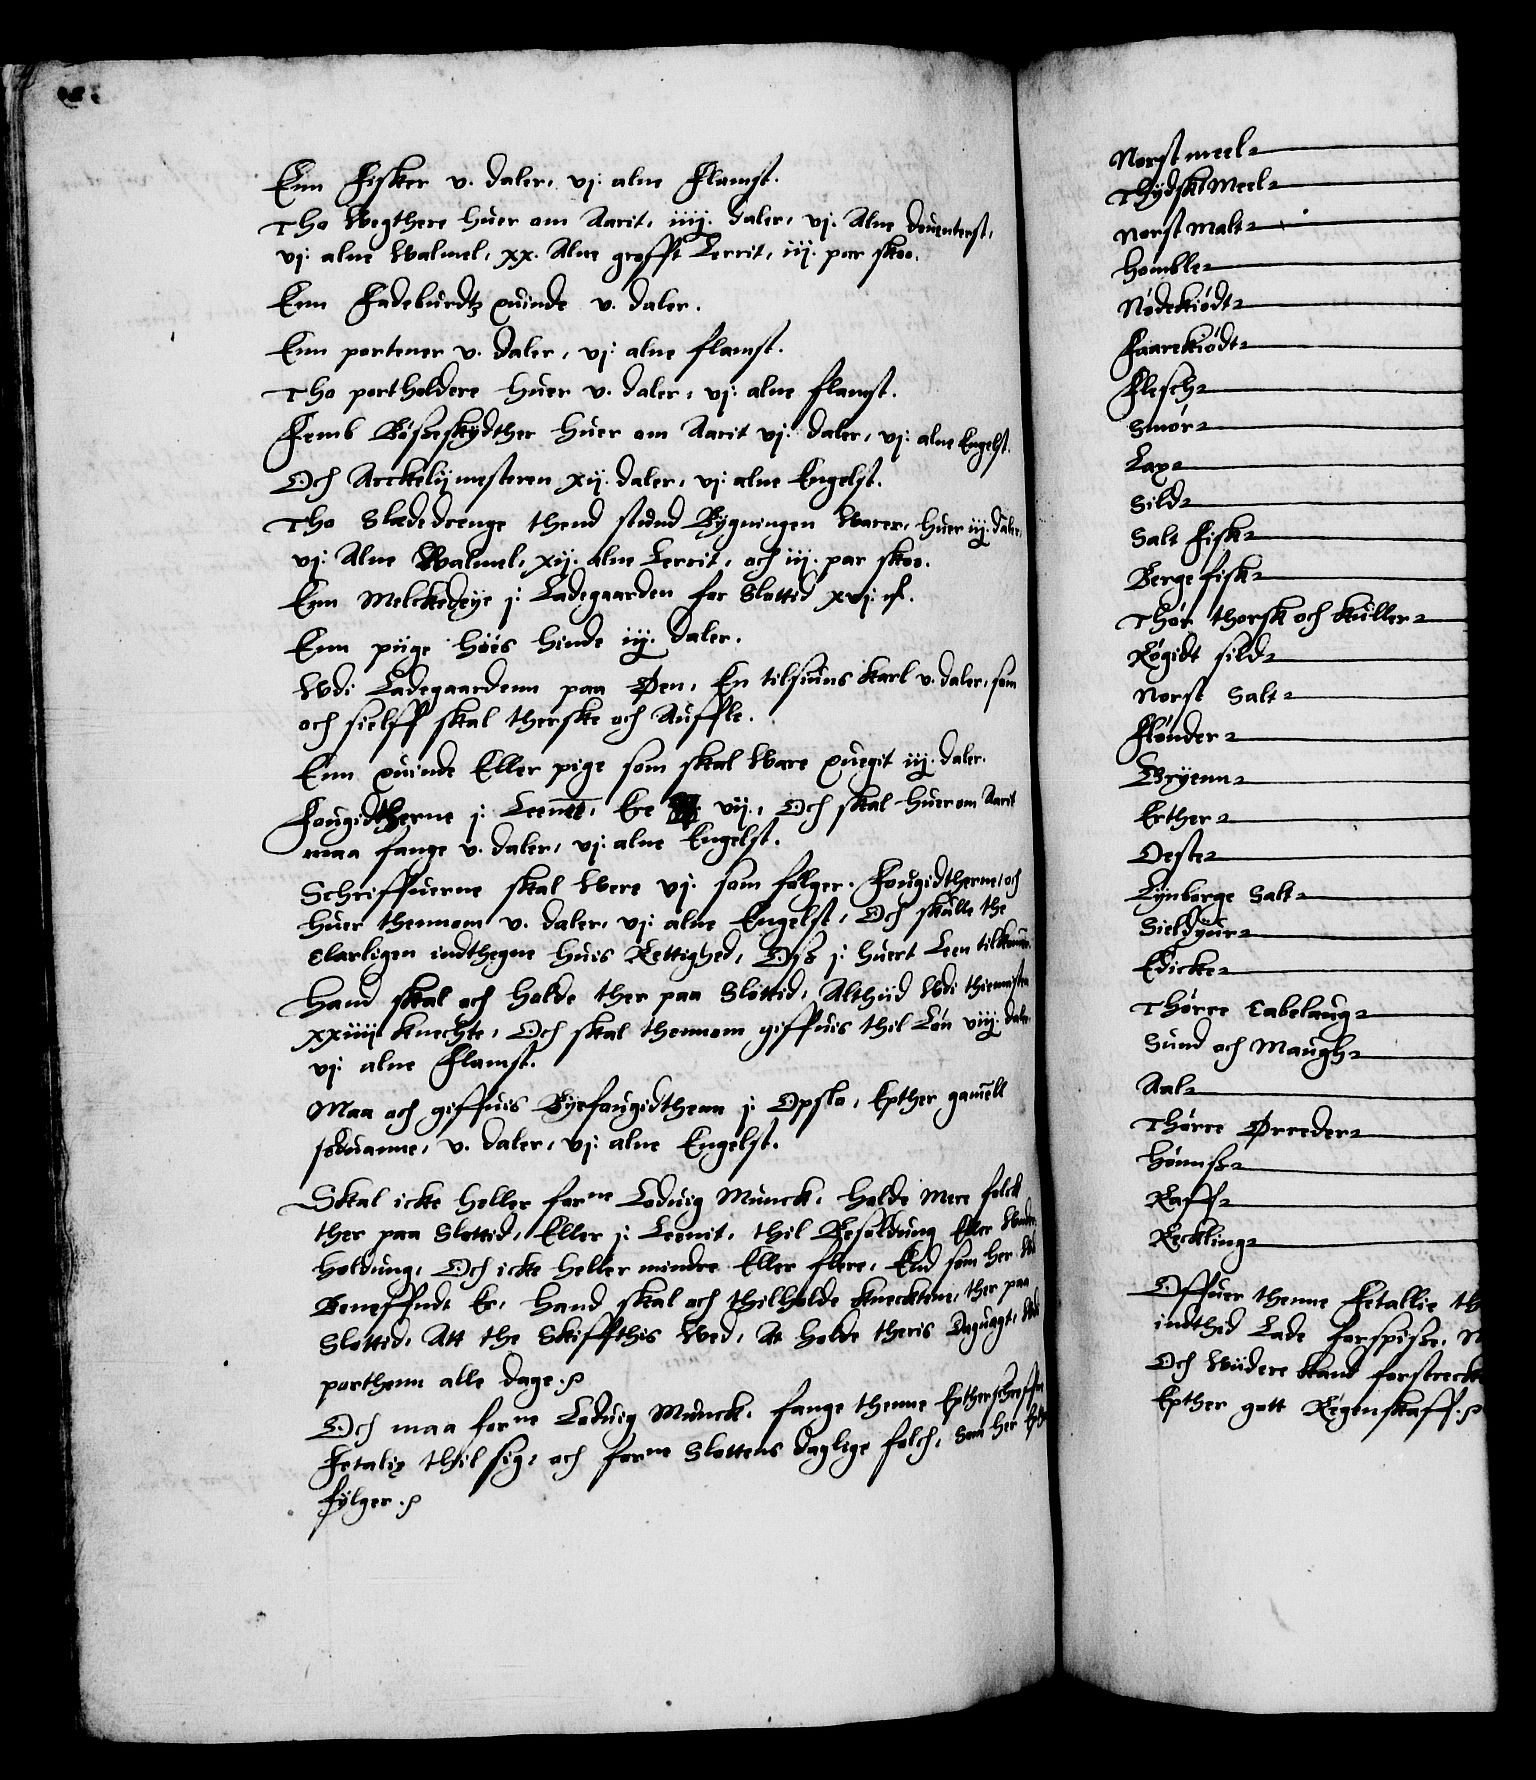 Enn Fisker v. daler, vj: alne Flamst.
Tho Wegthere huer om Aarit, iiij. daler, vj. Alne Deuenterst,
vj: alne Walmel, xx. Alne grofft Lerrit, iij. par skoo.
Enn Fadeburdtz quinde v. daler.
Enn portener v. daler, vj: alne flamst.
Tho portholdere huer v. daler, vj: alne flamst.
Femb Bøsseskydther huer om Aarit vj: daler, vj: alne Engelst.
Och Arckelijmesteren xij. daler, vj: alne Engelst.
Tho Slædedrenge thend stund Bygningen Warer, huer iij. daler,
vj: Alne Walmel, xij. alne Lerrit, och iij. par skoo.
Enn Melckedeye j: Ladegaarden for Slottid xvj.
Enn piige hoes hinde iij. daler.
Wdi Ladegaardenn paa Øen, En tilsiuns karl v. daler, som
och sielff skal therske och Auffle.
Enn quinde Eller pige som skal Ware quegit iij. daler.
Fougidtherne j: Leennit, Ere vij., Och skal huer om Aarit
maa fange v. daler, vj: alne Engelst.
Schriffuerne skal Were vj. som følger. Fougidtherne, och
huer thennom v. daler, vj: alne Engelst, Och skulle the
Clarligen indthegne huis Rettighed, j: huert Leen
Hand skal och holde ther paa Slottid, Althiid Wdi thiemisten
xxiiij knechte, Och skal thennom giffuis thil Løn viij. daler
vj: alne Flamst.
Maa och giffuis Byefougidthenn j: Opslo, Epther gamell
seduanne, v. daler, vj: alne Engelst.
Skal icke heller forne Loduig Munck, holde Mere folck
ther paa Slottid, Eller j: Leenit, thil Besoldung Eller Wnder
holdung, Och icke heller mindre Eller flere, End som her
Beneffndt Er, Hand skal och thilholde knecktene, ther paa
Slottid, Att the Skiffthis Wed, At holde theris Daguagt, Wdi
porthenn alle dage.
Och maa forne Loduig Munck, fange thenne
Fetalie thil sig, och forne Slottens daglige folch, Som her
følger.
Norst meel
Thydskt Meel
Norst Malt
Homble
Nødekiødt
Faarekiødt
Flesch
Smør
Lax
Sild
Salt Fisk
Berge fisk
Thør thorsk och kuller
Røgidt sild
Norst Salt
Flønder
Gryenn
Erther
Oeste
Lynborge Salt
Sieldyur
Edicke
Thørre Cabelaug
Sund och Maugh
Aal
Thørre Ørreder
Hønnss
Raff
Reckling
Offuer thenne Fetallie
indthed Lade forspisse,
Och Wiidere kand forstrecke
Epther gott Regenskaff.